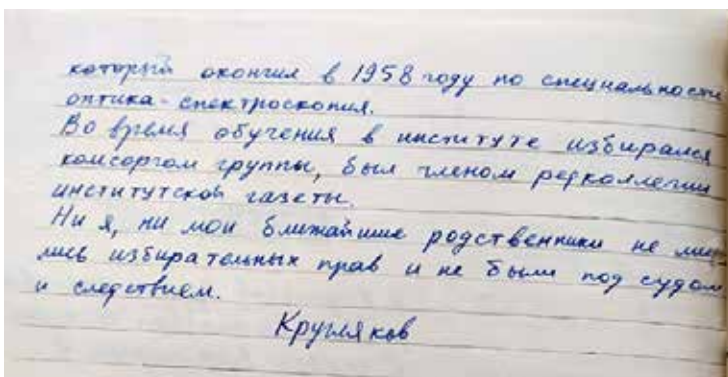 который окончил в 1958 году по специальности
оптика-спектроскопия.
Во время обучения в институте избирался
комсоргом группы, был членом редколлегии
институтской газеты.
Ни я, ни мои ближайшие родственники не
лись избирательных прав и не были под судом
и следствием.
Кругляков